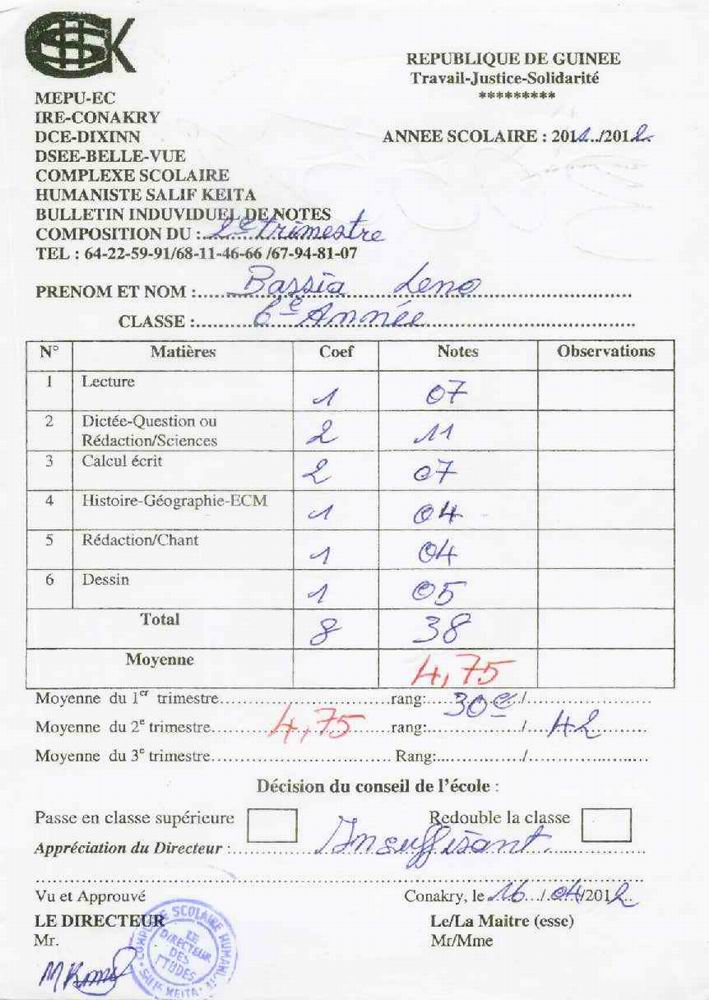 SK
REPUBLIQUE DE GUINEE
Travail-Justice-Solidarité
*********
MEPU-EC
IRE-CONAKRY
DCE-DIXINN
ANNEE SCOLAIRE : 2011../2012.
DSEE-BELLE-VUE
COMPLEXE SCOLAIRE
HUMANISTE SALIF KEITA
BULLETIN INDUVIDUEL DE NOTES
COMPOSITION DU : 2e trimestre
TEL : 64-22-59-91/68-11-46-66 /67-94-81-07
PRENOM ET NOM : Bassia Leno
CLASSE : 6e Année
N° Matières Coef Notes Observations
1 Lecture 1 07
2 Dictée-Question ou Rédaction/Sciences 2 11
3 Calcul écrit 2 07
4 Histoire-Géographie-ECM 1 04
5 Rédaction/Chant 1 04
6 Dessin 1 05
Total 8 38
Moyenne 4,75
Moyenne du 1er trimestre rang: 30e /
Moyenne du 2e trimestre 4,75 rang: / 42
Moyenne du 3e trimestre Rang: /
Décision du conseil de l'école :
Passe en classe supérieure Redouble la classe
Appréciation du Directeur : Insuffisant
Vu et Approuvé Conakry, le 16 / 04/2012
LE DIRECTEUR Le/La Maitre (esse)
Mr. Mr/Mme
COMPLEXE SCOLAIRE HUMANISTE SALIF KEITA
LE DIRECTEUR DES ETUDES